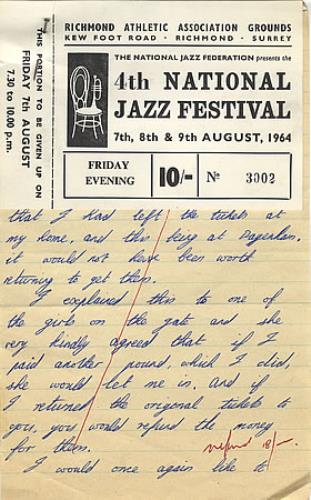 RICHMOND ATHLETIC ASSOCIATION GROUNDS
KEW FOOT ROAD · RICHMOND · SURREY
THIS PORTION TO BE GIVEN UP ON
FRIDAY 7th AUGUST
7.30 to 10.00 p.m.
THE NATIONAL JAZZ FEDERATION presents the
4th NATIONAL
JAZZ FESTIVAL
7th, 8th & 9th AUGUST, 1964
FRIDAY
EVENING
10/-
No 3002
that I had left the tickets at
my home, and this being at Dagenham.
it would not have been worth
returning to get them.
I explained this to one of
the girls on the gate and she
very kindly agreed that if I
paid another pound, which I did,
she would let me in. and if
I returned the origonal tickets to
you, you would refund the money
for them.
refund 18/-.
I would once again like to